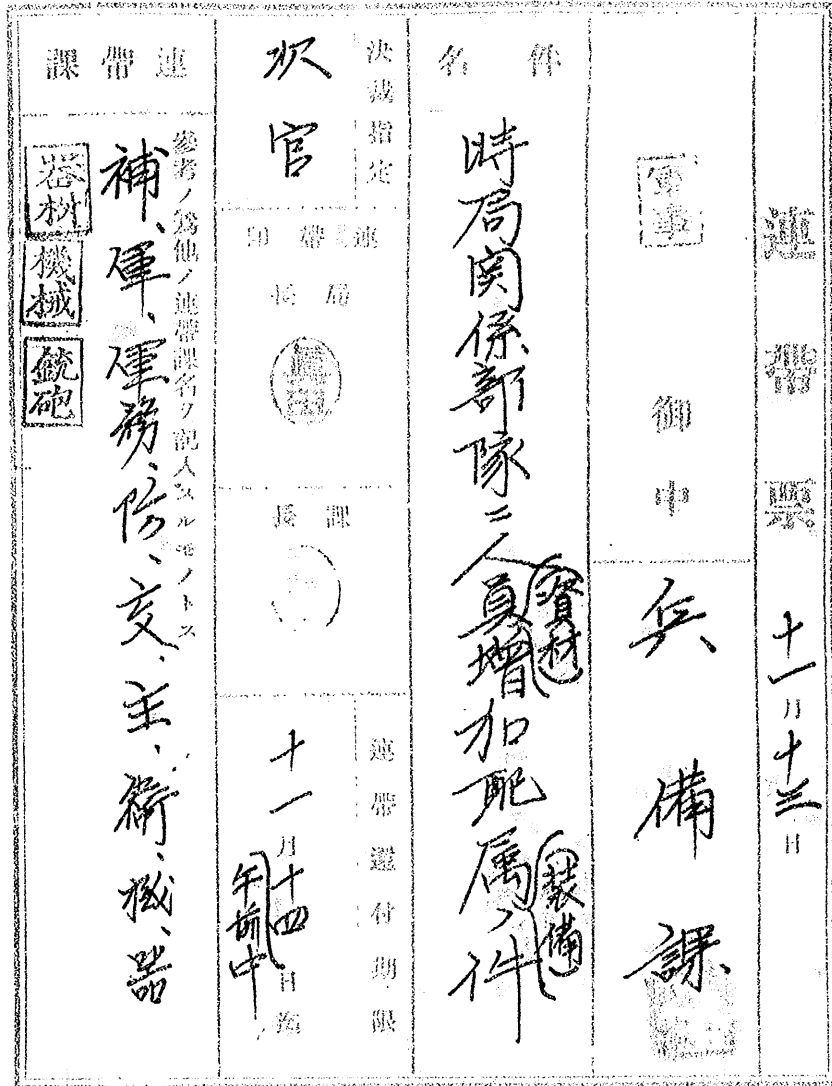 連帶票
十一月十三日
軍事 御中
兵備課
件名
時局関係部隊ニ人員増加配属ノ件
(資材)
(装備)
決裁指定
次官
連帶印
局長
課長
連帶還付期限
十一月十四日迄
(午前中)
連帶課
參考ノ爲他ノ連帶課名ヲ記入スルモノトス
補、軍、軍務、防、交、主、衛、機、器
器材 機械 銃砲